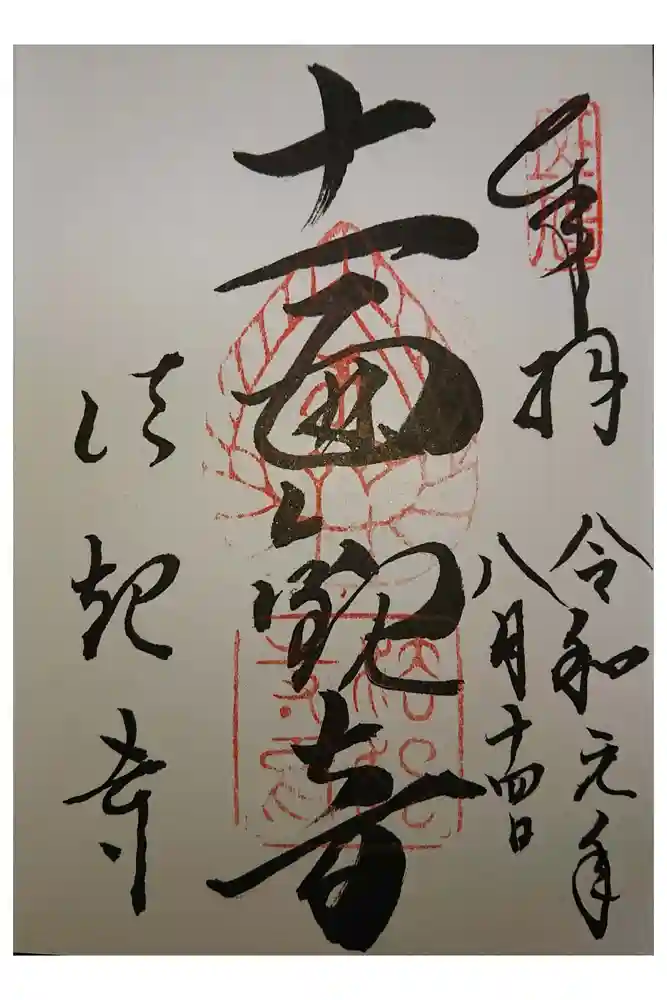 奉拝
令和元年
八月十四日
十一面観音
法起寺